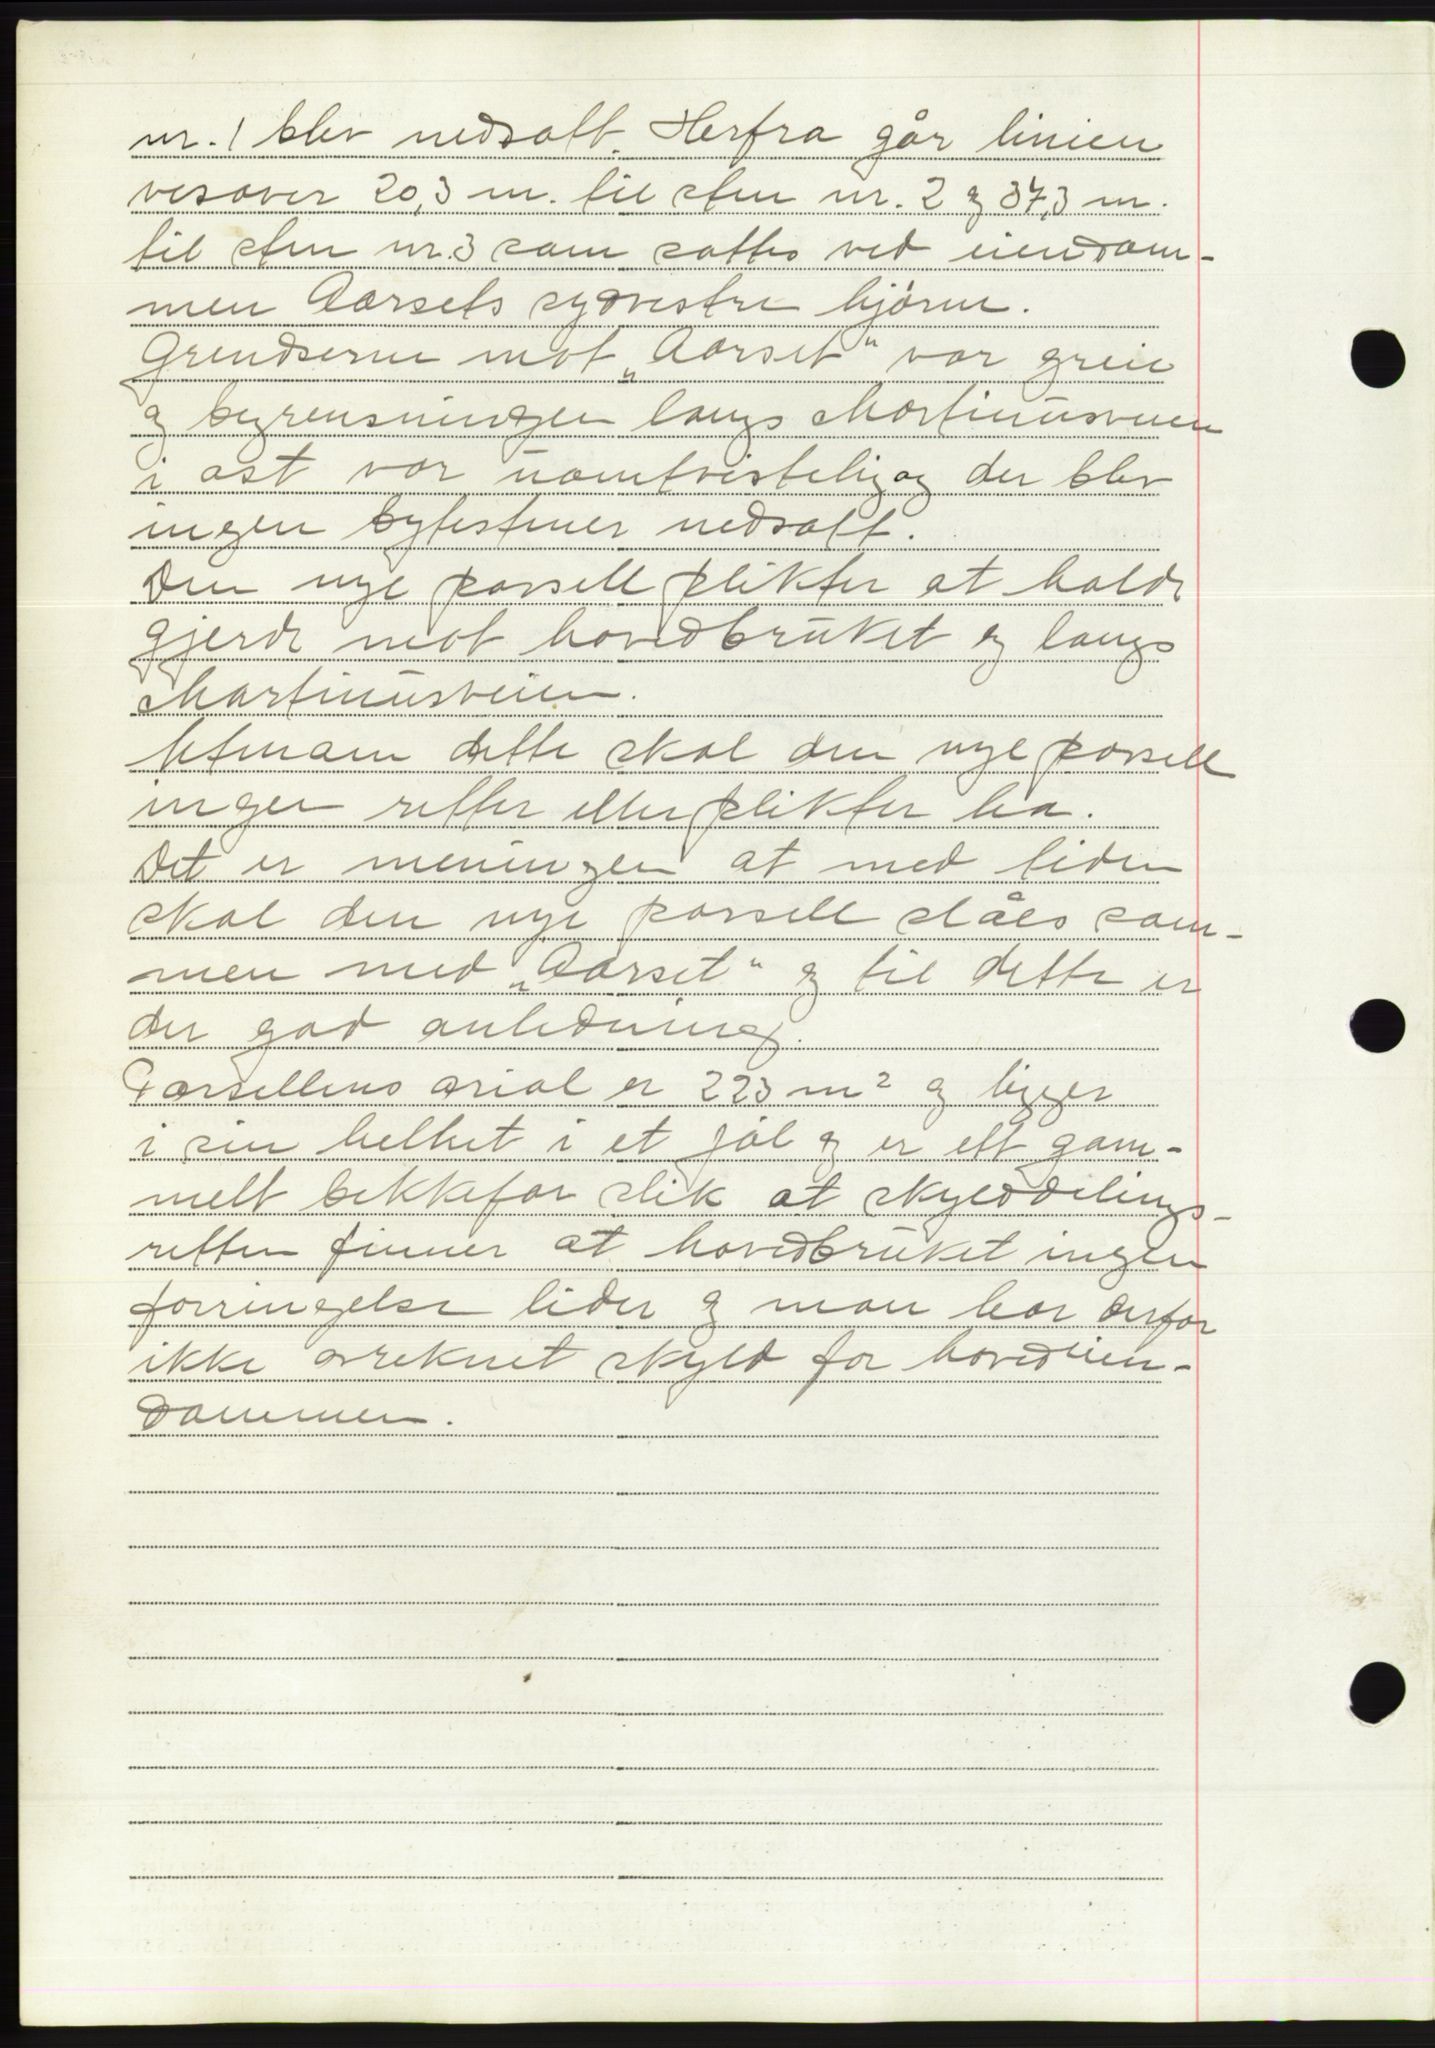 nr. 1 blev nedsatt. Herfra går linien
vesover 20,3 m. til sten nr. 2 og 37,3 m.
til sten nr. 3 som sattes ved eiendom-
men Aarsets sydvestre hjörne.
Grendserne mot „Aarset“ var greie
og begrensningen langs Martinusveien
i ost var uomtvistelig og der blev
ingen bytestener nedsatt.
Den nye parsell plikter at holde
gjerde mot hovedbruket og langs
Martinusveien.
Utenom dette skal den nye parsell
ingen retter eller plikter ha.
Det er meningen at med tiden
skal den nye parsell slåes sam-
men med „Aarset“ og til dette er
der god anledning.
Parsellens arial er 223 m² og ligger
i sin helhet i et jål og er ett gam-
melt bekkefar slik at skylddelings-
retten finner at hovedbruket ingen
forringelse lider og man har derfor
ikke avreknet skyld for hovedeien-
dommen.